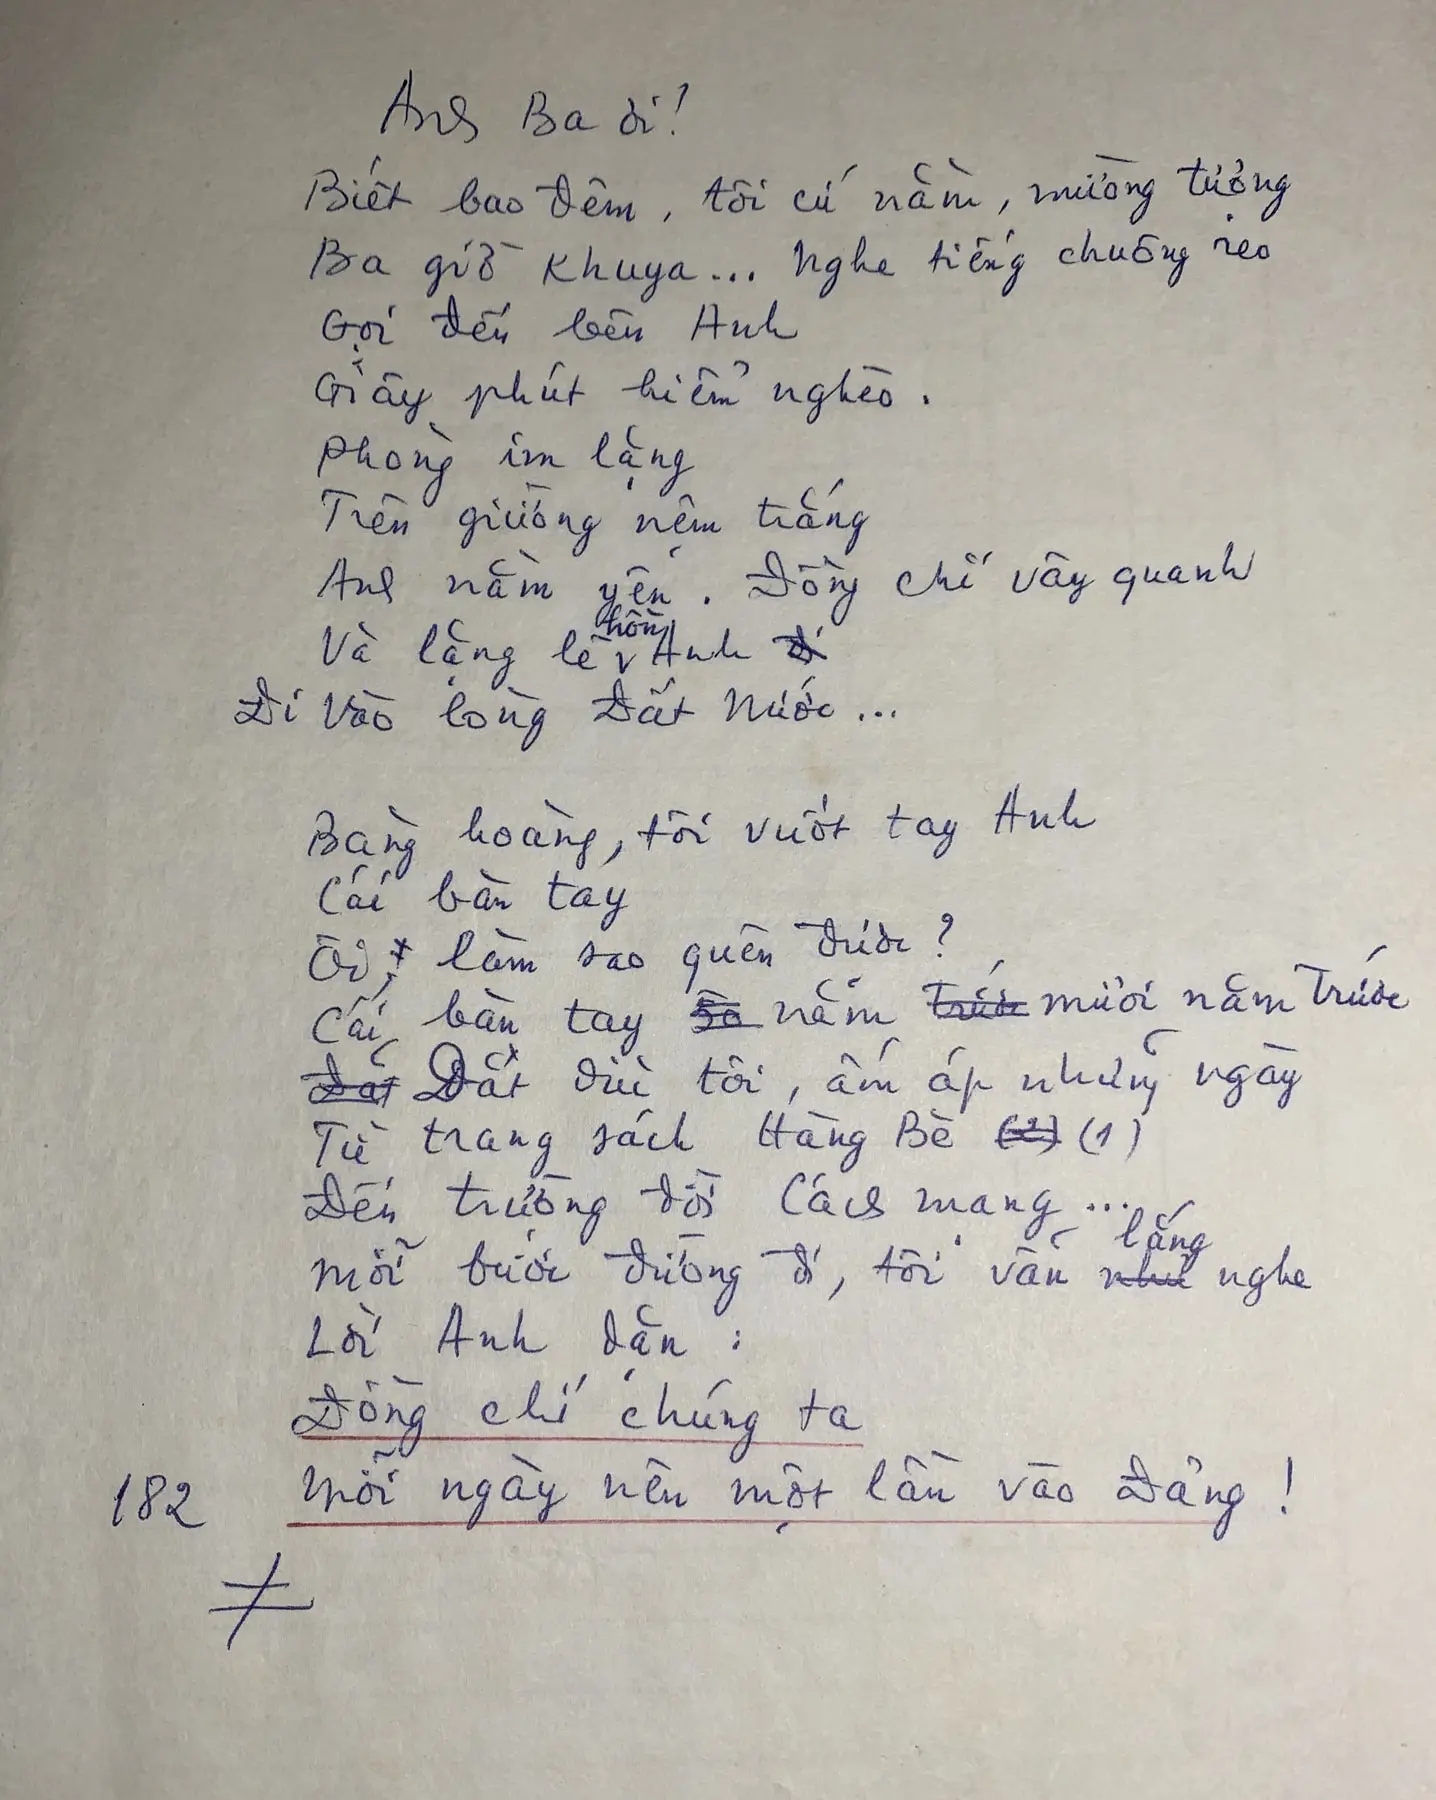 Anh Ba ơi!
Biết bao đêm, tôi cứ nằm, mường tưởng
Ba giờ khuya... Nghe tiếng chuông reo
Gọi đến bên Anh
Giây phút hiểm nghèo.
Phòng im lặng
Trên giường nệm trắng
Anh nằm yên. Đồng chí vây quanh
Và lặng lẽ hồn Anh
Đi vào lòng Đất Nước...
Bàng hoàng, tôi vuốt tay Anh
Cái bàn tay
Ôi, làm sao quên được?
Cái bàn tay năm mươi năm trước
Dắt dìu tôi, ấm áp những ngày
Từ trang sách Hàng Bè (1)
Đến trường đời Cách mạng...
Mỗi bước đường đi, tôi vẫn lắng nghe
Lời Anh dặn:
Đồng chí chúng ta
Mỗi ngày nên một lần vào Đảng!
182
≠